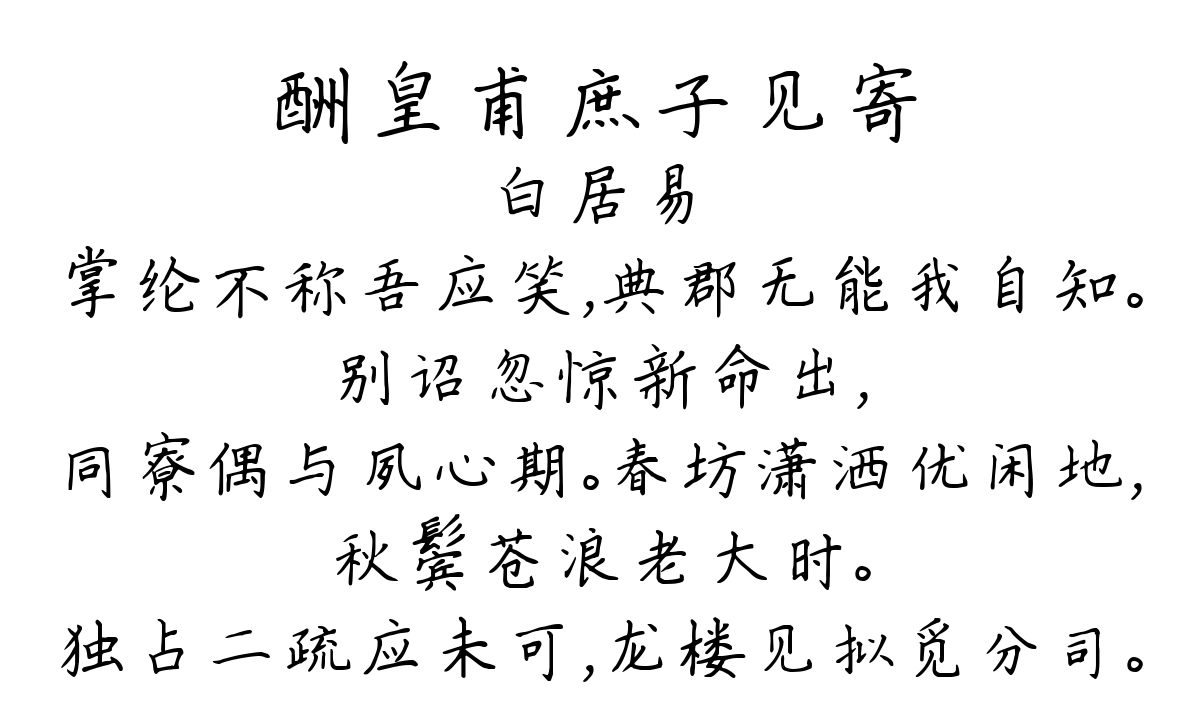 酬皇甫庶子见寄
白居易
掌纶不称吾应笑,典郡无能我自知。
别诏忽惊新命出,
同寮偶与夙心期。春坊潇洒优闲地,
秋鬓苍浪老大时。
独占二疏应未可,龙楼见拟觅分司。